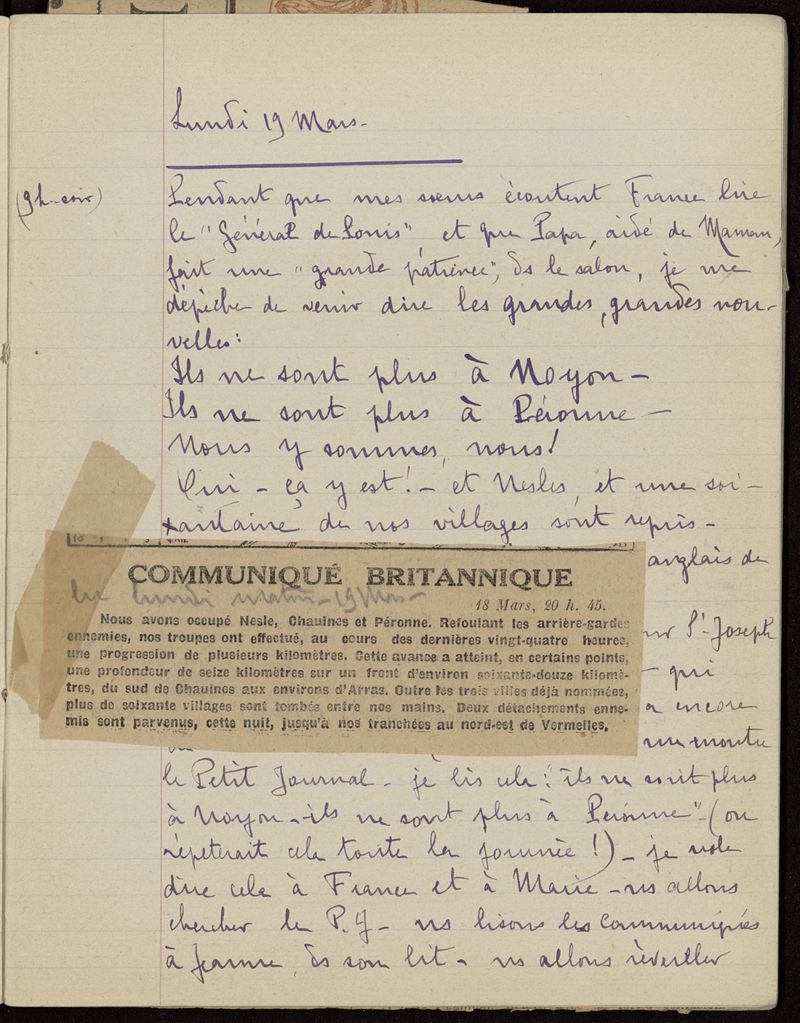 Lundi 19 Mars-
(9h-soir)
Pendant que mes sœurs écoutent France lire
le "Général de Louis" et que Papa, aidé de Maman,
fait une "grande patience", ds le salon, je me
dépêche de venir dire les grandes, grandes nou-
velles:
Ils ne sont plus à Noyon-
Ils ne sont plus à Péronne-
Nous y sommes, nous!
Oui - ça y est! - et Nesles, et une soi-
xantaine de nos villages sont repris-
anglais de
COMMUNIQUÉ BRITANNIQUE
lu lundi matin - 19 Mars -
18 Mars, 20 h. 45.
Nous avons occupé Nesle, Chaulnes et Péronne. Refoulant les arrière-gardes
ennemies, nos troupes ont effectué, au cours des dernières vingt-quatre heures,
une progression de plusieurs kilomètres. Cette avance a atteint, en certains points,
une profondeur de seize kilomètres sur un front d'environ soixante-douze kilomè-
tres, du sud de Chaulnes aux environs d'Arras. Outre les trois villes déjà nommées,
plus de soixante villages sont tombés entre nos mains. Deux détachements enne-
mis sont parvenus, cette nuit, jusqu'à nos tranchées au nord-est de Vermelles.
St-Joseph
- qui
a encore
me montre
le Petit Journal - je lis cela: "ils ne sont plus
à Noyon - ils ne sont plus à Péronne" - (on
répèterait cela toute la journée!) - je vole
dire cela à France et à Marie - ns allons
chercher le P.J - ns lisons les communiqués
à Jeanne, ds son lit - ns allons réveiller